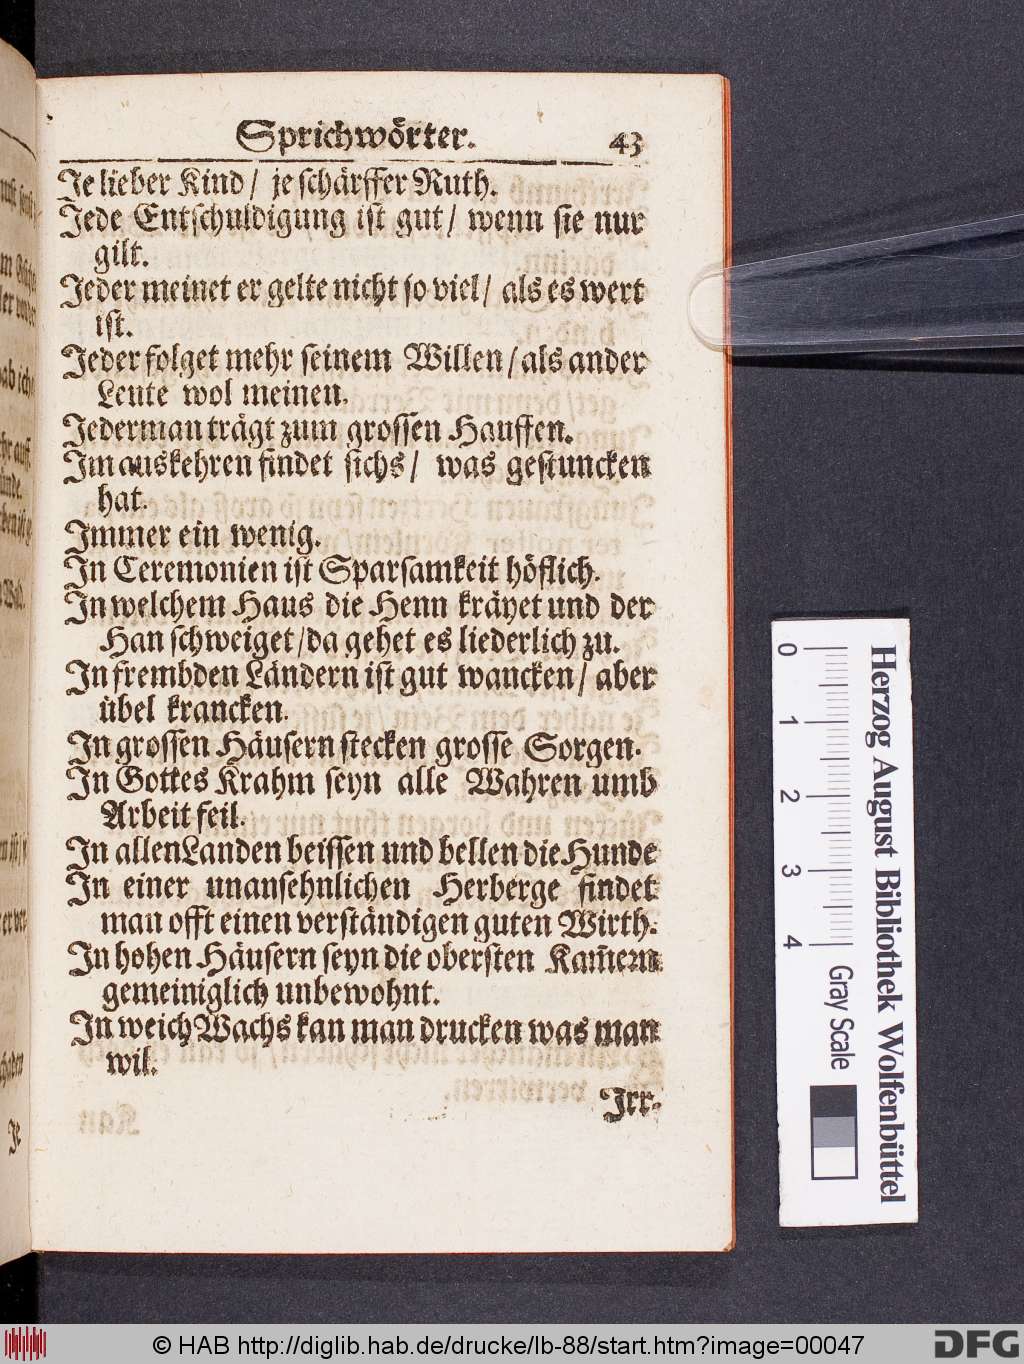 Sprichwörter. 43
Je lieber Kind / je schärffer Ruth.
Jede Entschuldigung ist gut / wenn sie nur
gilt.
Jeder meinet er gelte nicht so viel / als es wert
ist.
Jeder folget mehr seinem Willen / als ander
Leute wol meinen.
Jederman trägt zum grossen Hauffen.
Im auskehren findet sichs / was gestuncken
hat.
Immer ein wenig.
In Ceremonien ist Sparsamkeit höflich.
In welchem Haus die Henn kräyet und der
Han schweiget / da gehet es liederlich zu.
In frembden Ländern ist gut wancken / aber
übel krancken.
In grossen Häusern stecken grosse Sorgen.
In Gottes Krahm seyn alle Wahren umb
Arbeit feil.
In allen Landen beissen und bellen die Hunde
In einer unansehnlichen Herberge findet
man offt einen verständigen guten Wirth.
In hohen Häusern seyn die obersten Kam̄ern
gemeiniglich unbewohnt.
In weich Wachs kan man drucken was man
wil.
Irr-
Je
0 1 2 3 4
Gray Scale
Herzog August Bibliothek Wolfenbüttel
© HAB http://diglib.hab.de/drucke/lb-88/start.htm?image=00047
DFG